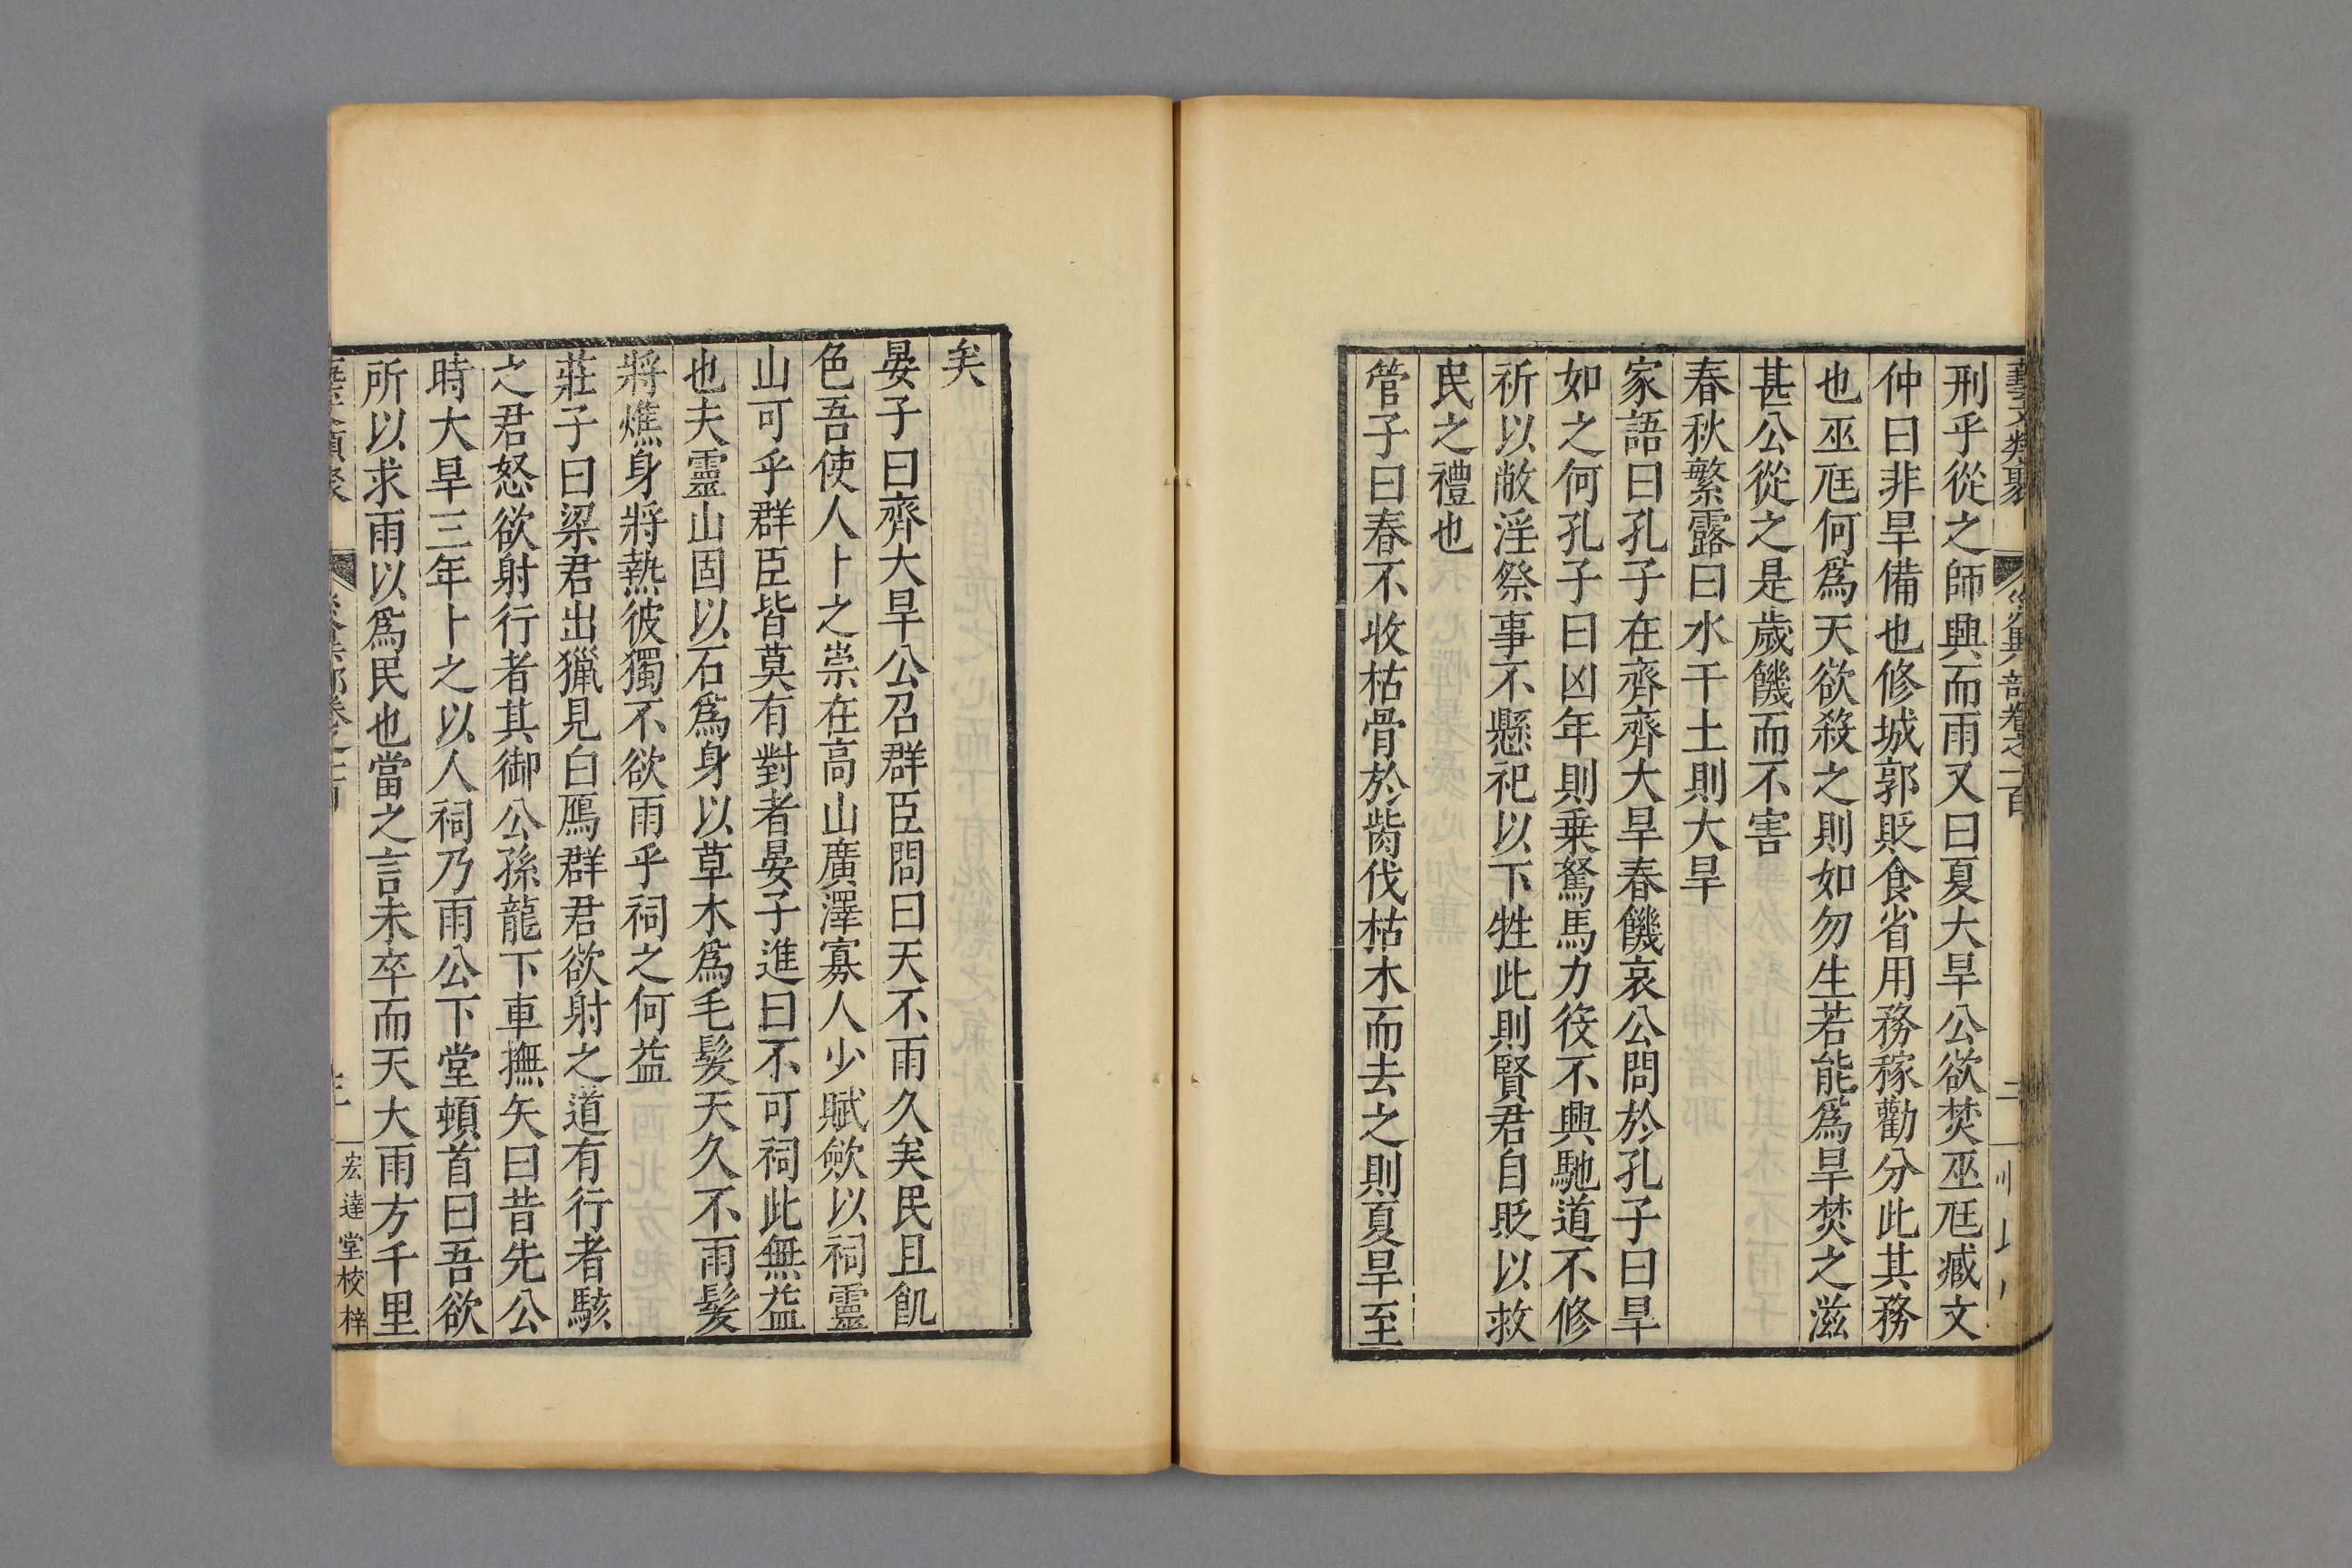 藝文類聚 災異部卷之一百 二
刑乎從之師興而雨又曰夏大旱公欲焚巫尫臧文
仲曰非旱備也修城郭貶食省用務稼勸分此其務
也巫尫何爲天欲殺之則如勿生若能爲旱焚之滋
甚公從之是歲饑而不害
春秋繁露曰水干土則大旱
家語曰孔子在齊齊大旱春饑哀公問於孔子曰旱
如之何孔子曰凶年則乗駑馬力役不興馳道不修
祈以敝淫祭事不懸祀以下牲此則賢君自貶以救
民之禮也
管子曰春不收枯骨於胔伐枯木而去之則夏旱至
矣
晏子曰齊大旱公召群臣問曰天不雨久矣民且飢
色吾使人卜之祟在高山廣澤寡人少賦歛以祠靈
山可乎群臣皆莫有對者晏子進曰不可祠此無益
也夫靈山固以石爲身以草木爲毛髮天久不雨髮
將燋身將熱彼獨不欲雨乎祠之何益
莊子曰梁君出獵見白鴈群君欲射之道有行者駭
之君怒欲射行者其御公孫龍下車撫矢曰昔先公
時大旱三年卜之以人祠乃雨公下堂頓首曰吾欲
所以求雨以爲民也當之言未卒而天大雨方千里
宏達堂校梓